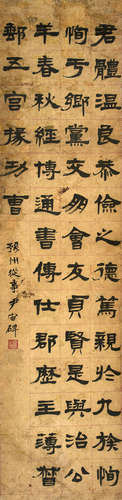 君體溫良恭儉之德篤親於九族恂
恂于鄉黨交朋會友貞賢是與治公
羊春秋經博通書傳仕郡歷主薄督
郵五官掾功曹
豫州從事尹宙碑